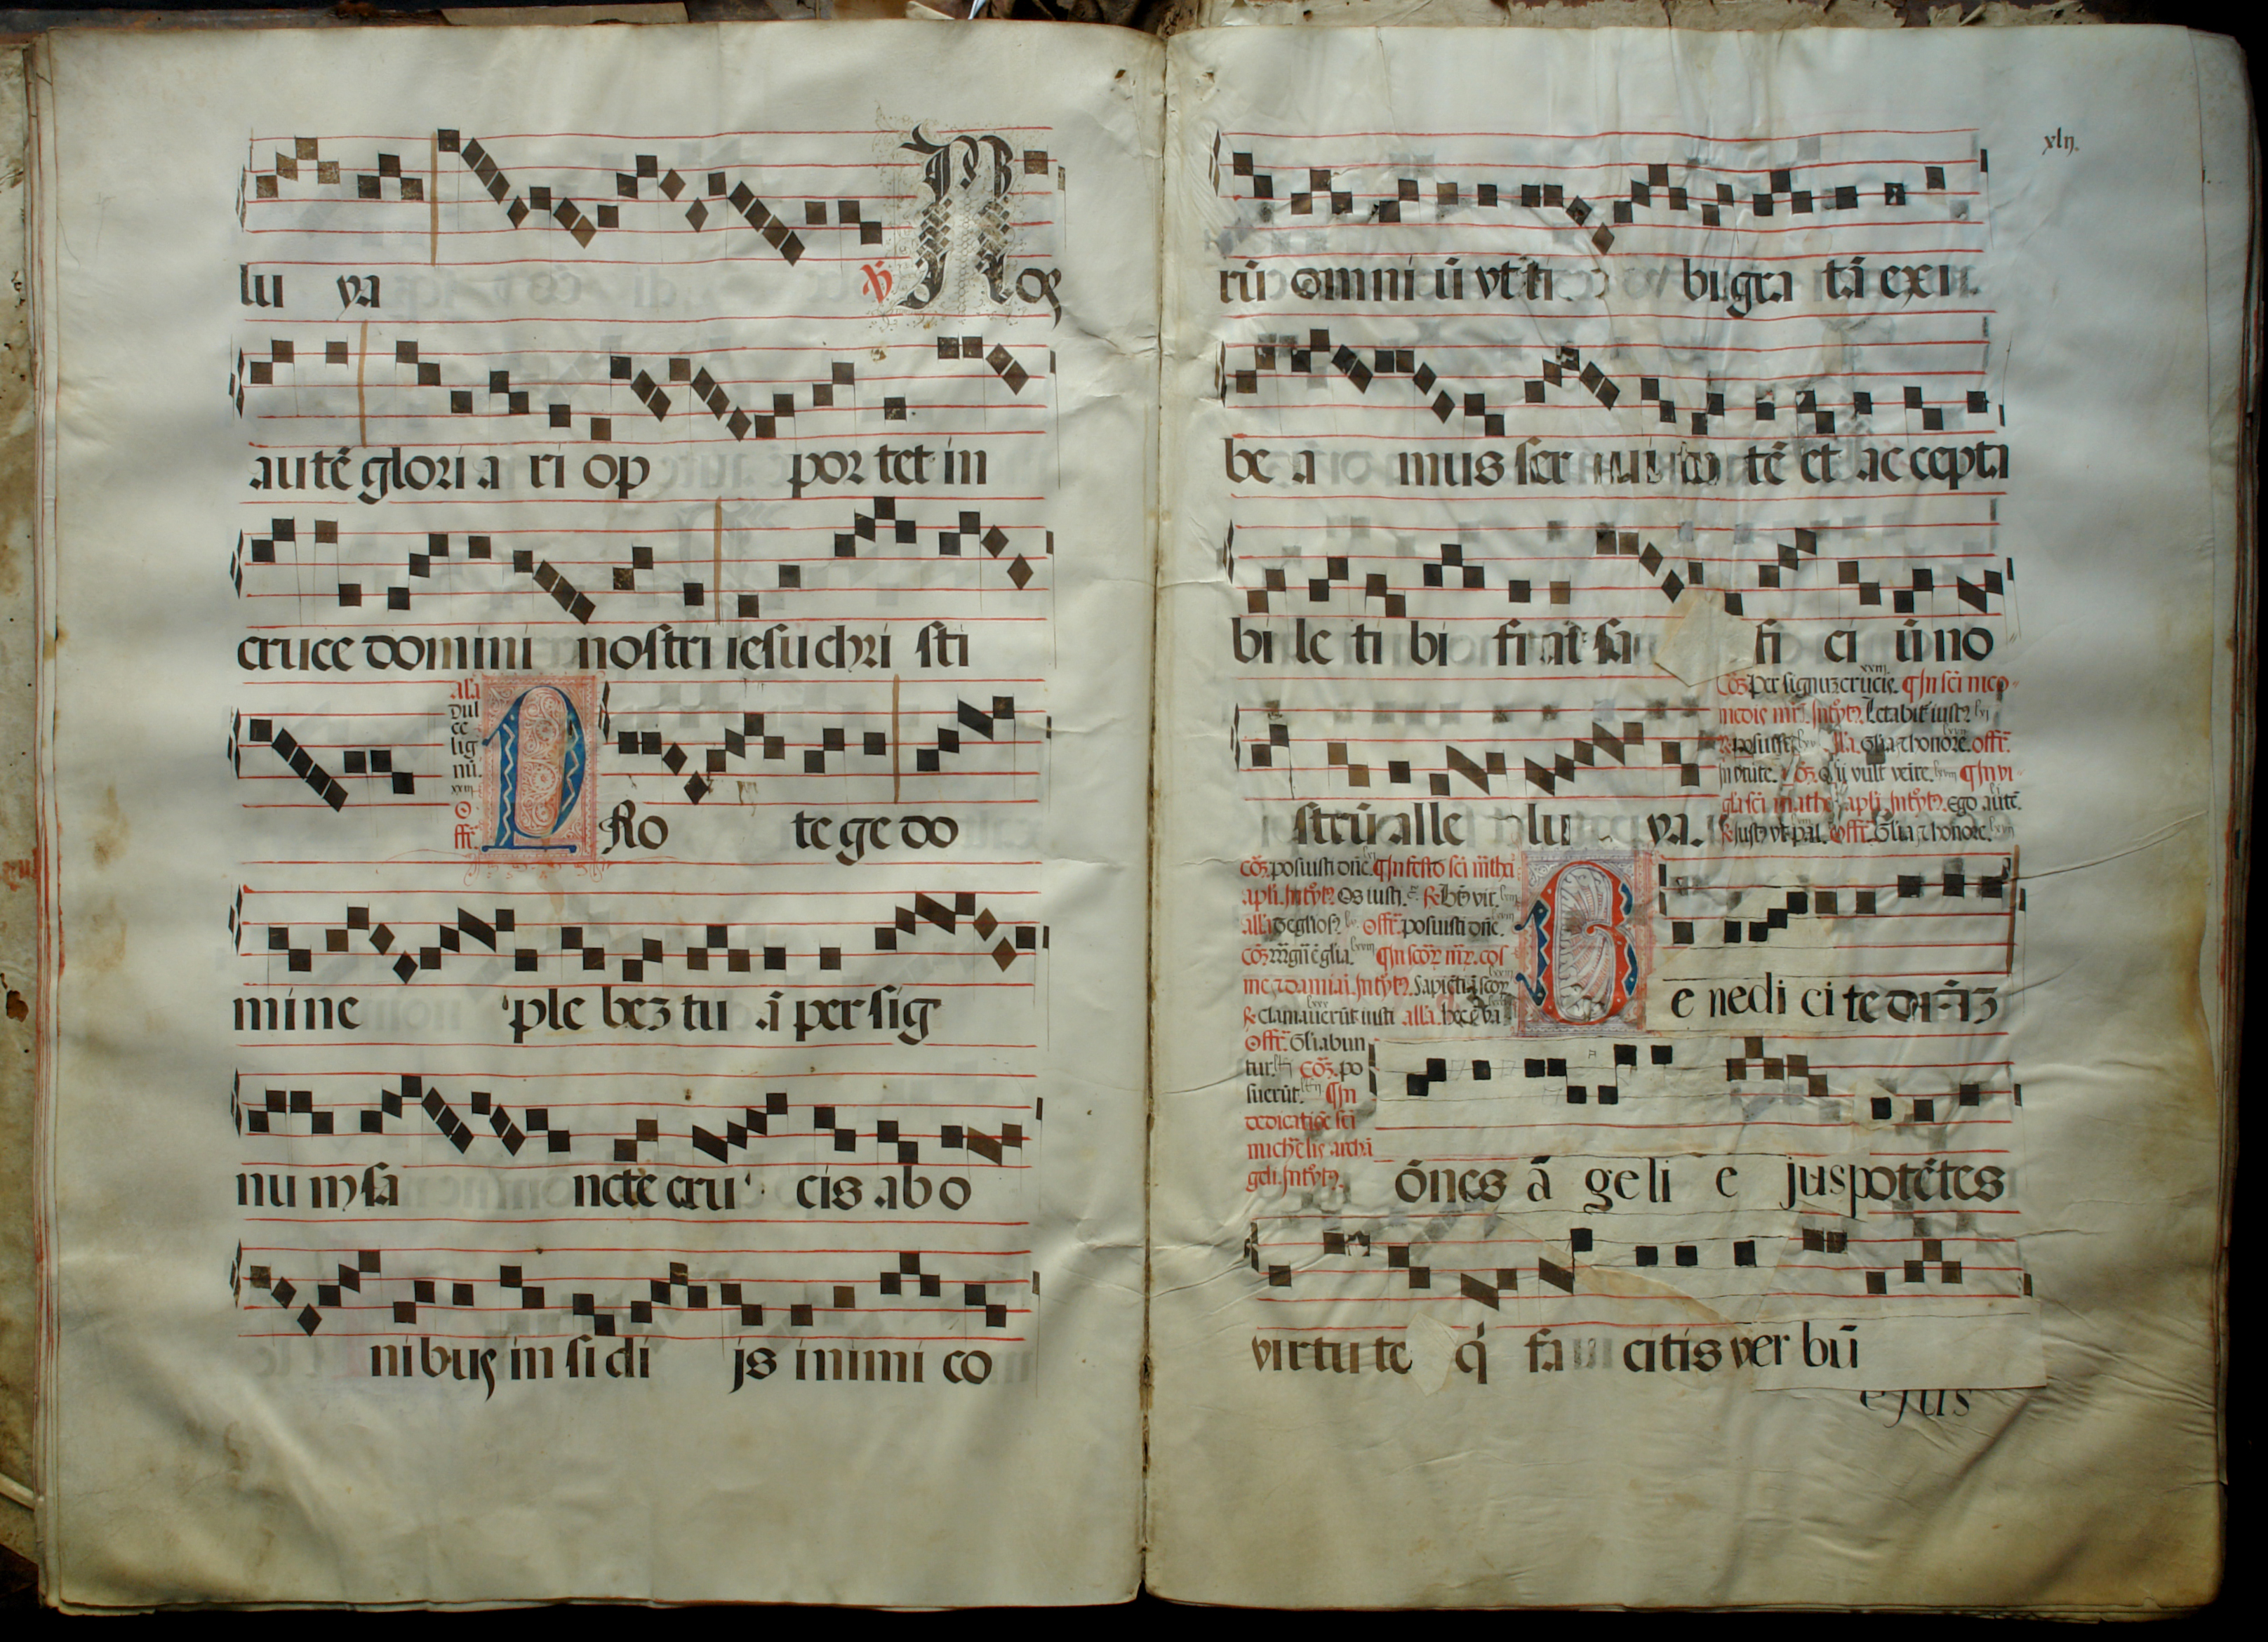 lu ya ℣ Nos
autē gloria ri op por tet in
cruce domini nostri iesu chri sti
alla
dul
ce
lig
nū.
xxiij
O
ffr̄.
PRo te ge do
mine ple bez tu ā per sig
nu m sa ncte cru cis ab o
nibus in si di js inimi co
xlij.
rū omni ū vt ti bi gra tā exi
be a mus ser tē et ac cepta
bi le ti bi fi at sa fi ci ū no
strū alle lu ya.
Cō̄. Per signuz crucis. ¶ In sci nico
medis mr̄. Introytꝫ. Letabit̄ iustꝫ
posuisti alla. Glīa ⁊ honore. offr̄.
In v̄tute. cō̄. Qui vult venire. ¶ In vi
glīa sci mathei apli. Introytꝫ. Ego autē.
Justꝰ vt pal. offr̄. Glīa ⁊ honore.
cō̄. posuisti dn̄e. ¶ In festo sci mathei
apli. Introytꝫ. Os iusti. ℟. Bt̄us vir.
alla. Te gl̄iosꝫ offr̄. posuisti dn̄e.
cō̄. Magn̄ ē glīa. ¶ In scoꝝ mr̄. cos
me ⁊ damiani. Introytꝫ. Sapiētiā scoꝝ
℟. Clamauerūt iusti alla. hec ē va
Offr̄. Glīabun
tur. cō̄. po
suerūt. ¶ In
dedicatiōe sci
michaelis archā
geli. Introytꝫ.
Be nedi ci te
ōnes ā geli e jus potētes
virtu te q̇ fa citis ver bū
ejus